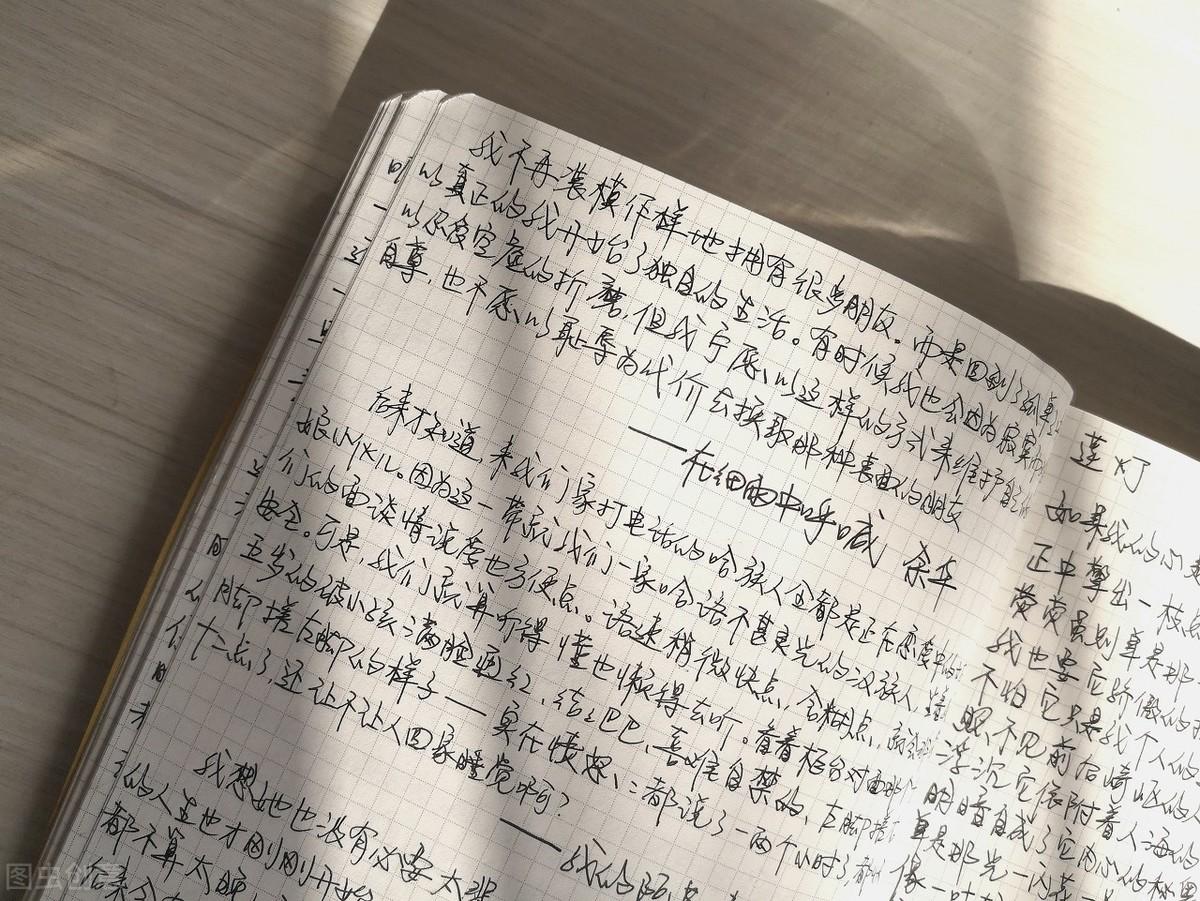 我不再装模作样地拥有很多朋友。而是回到了孤单之
以真正的我开始了独自的生活。有时候我也会因为寂寞而
以忍受空虚的折磨，但我宁愿以这样的方式来维护自己的
自尊，也不愿以耻辱为代价去换取那种表面的朋友
——在细雨中呼喊 余华
后来才知道，来我们家打电话的哈族人全都是正在恋爱中的
娘小伙儿。因为这一带就我们一家哈语不甚灵光的汉族人，
们的面谈情说爱也方便点。语速稍微快点，含糊点，
安全。可是，我们就算听得懂也懒得去听。看着柜台对面那个
五岁的破小孩满脸通红、结结巴巴、喜难自禁的、左脚搓
脚搓左脚的样子——实在愤怒：都说了一两个小时了，都
十二点了，还让不让人回家睡觉啊？
——我的阿
我想她也没有必要太
的人生也才刚刚开始
都不算太晚
莲灯
如果我的心
正中擎出一枝
荧荧虽则单是那
我也要它骄傲的
不怕它只是我个人的
照不见前后崎岖的
浮沉它依附着人海的
明暗自成了它内心的秘奥
单是那光一闪花一
像一叶
图虫创意